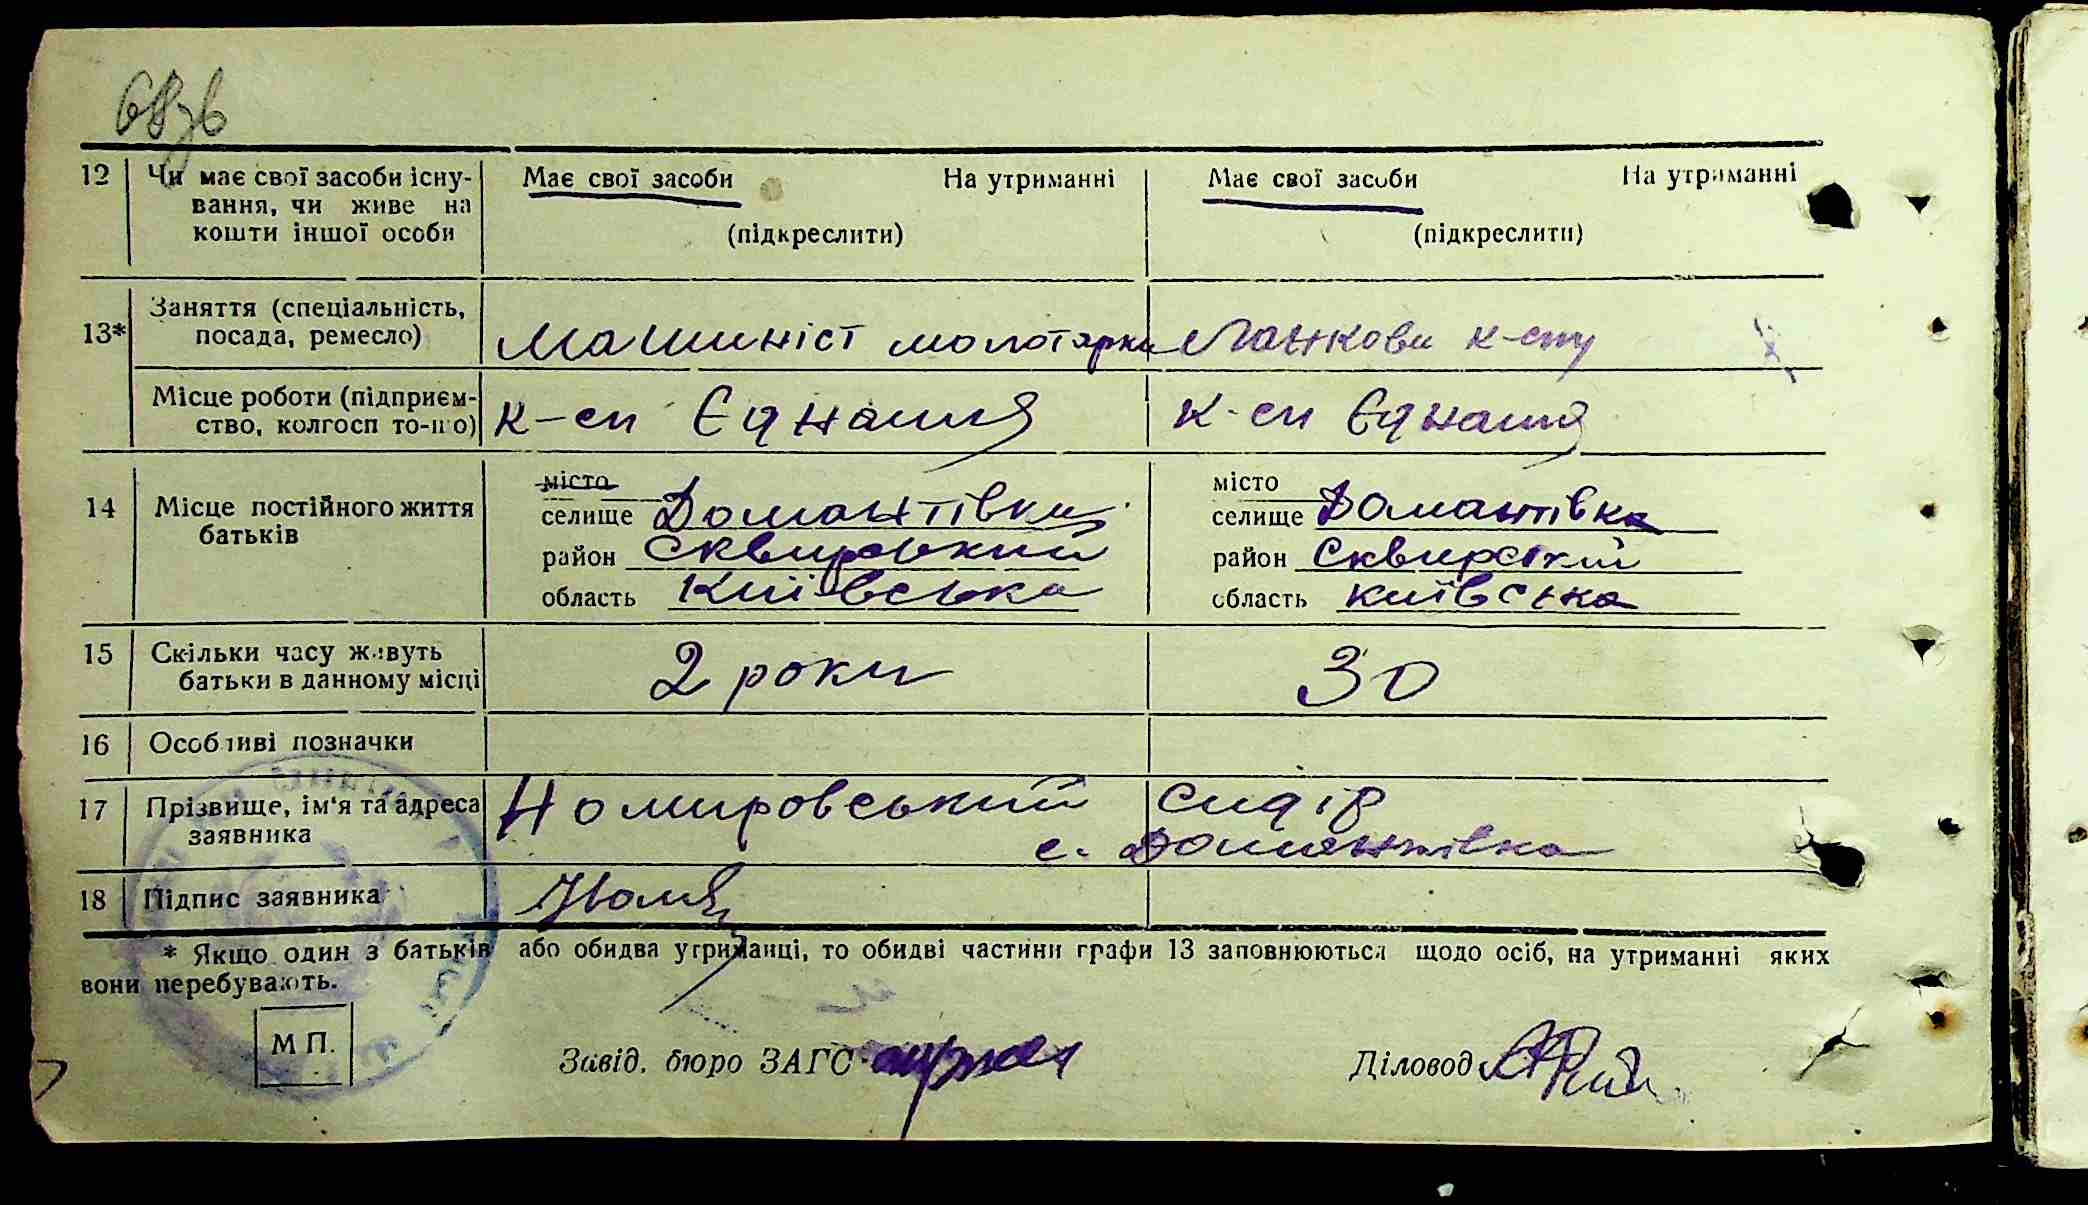 12 Чи має свої засоби існу-
вання, чи живе на
кошти іншої особи
Має свої засоби На утриманні
(підкреслити)
Має свої засоби На утриманні
(підкреслити)
13* Заняття (спеціальність,
посада, ремесло)
Машиніст молотарки
Ланкова к-спу
Місце роботи (підприєм-
ство, колгосп то-що)
К-сп Єднання
К-сп Єднання
14 Місце постійного життя
батьків
місто
селище Домантівка
район Сквирський
область Київська
місто
селище Домантівка
район Сквирський
область Київська
15 Скільки часу живуть
батьки в данному місці
2 роки
30
16 Особливі позначки
17 Прізвище, ім'я та адреса
заявника
Номировський Сидір
с. Домантівка
18 Підпис заявника
* Якщо один з батьків або обидва утриманці, то обидві частини графи 13 заповнюються щодо осіб, на утриманні яких
вони перебувають.
М П.
Завід. бюро ЗАГС
Діловод